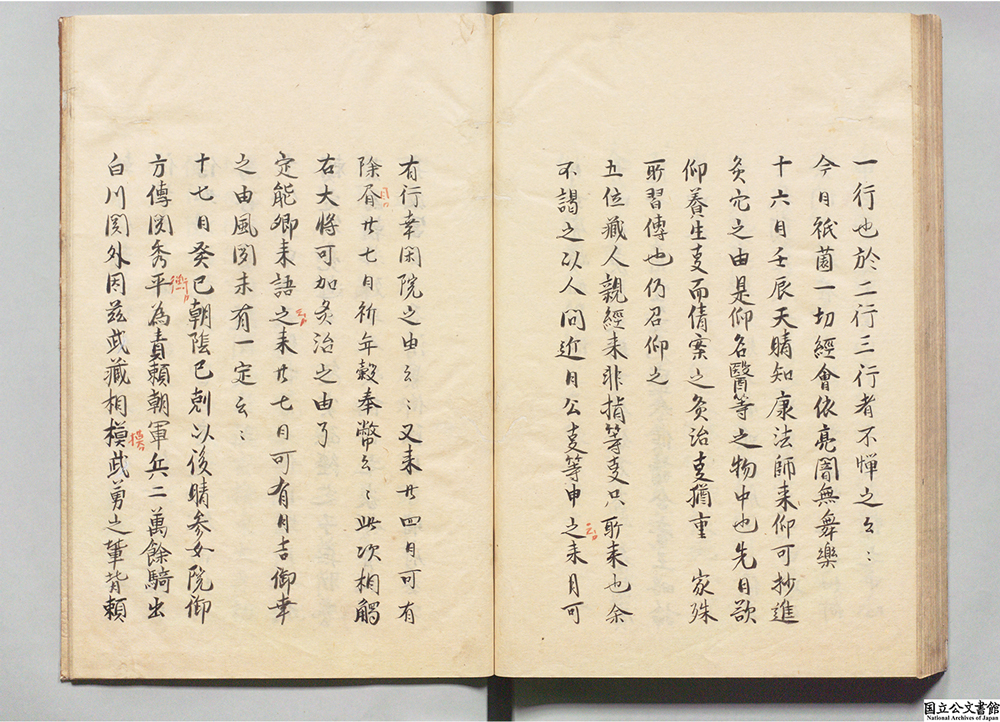 一行也於二行三行者不憚之云々
今日祇薗一切經會依亮闇無舞樂
十六日壬辰天晴知康法師来仰可抄進
灸穴之由是仰名醫等之物中也先日欲
仰養生支而倩案之灸治支猶重 家殊
所習傳也仍召仰之
五位藏人親經来非指等支只所来也余
不謁之以人問近日公支等申之来月可
云カ
有行幸閑院之由云々又来廿四日可有
除眉廿七日祈年穀奉幣云々此次相觸
目カ
右大将可加灸治之由了
定能卿来語之来廿七日可有日吉御幸
云カ
之由風聞未有一定云々
十七日癸巳朝陰巳剋以後晴参女院御
方傳聞秀平為責頼朝軍兵二萬餘騎出
衡カ
白川関外因茲武藏相模武勇之輩背頼
摸カ
国立公文書館
National Archives of Japan